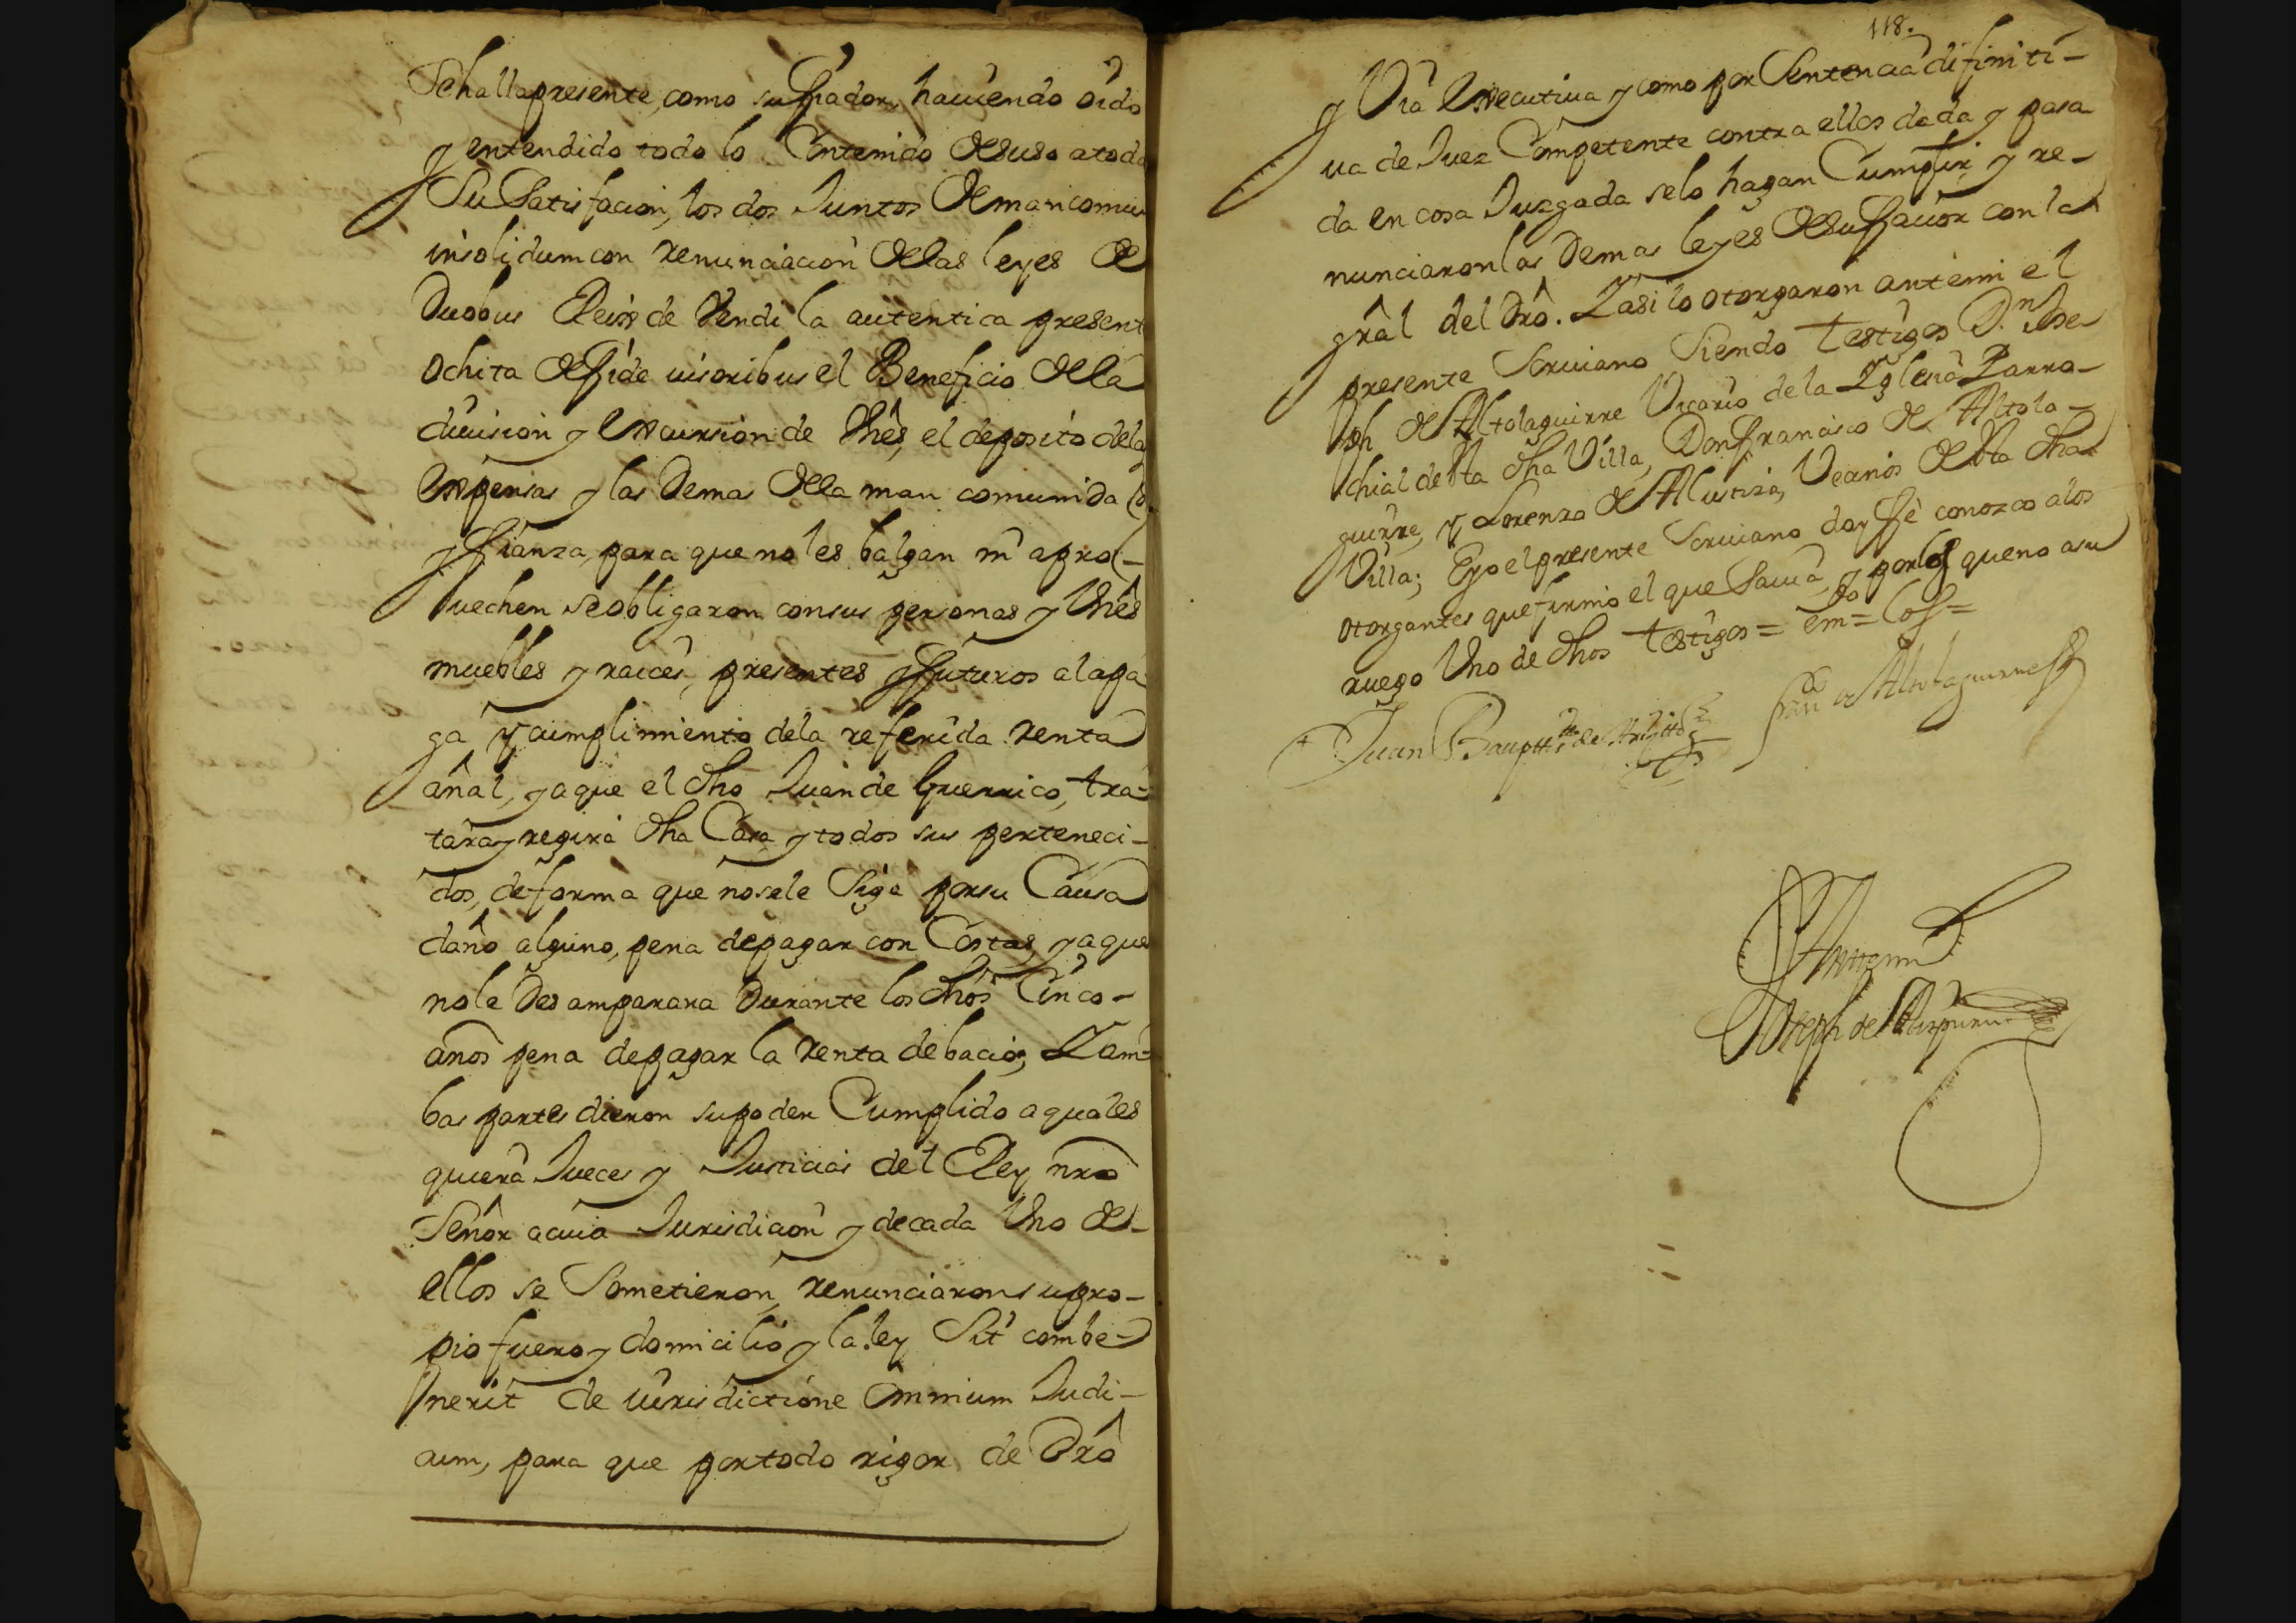 Se halla presente, como su fiador, haviendo oido
y entendido todo lo Contenido de suso a toda
Su Satisfacion, los dos Juntos de mancomun
insolidum con renunciacion de las leyes de
Duobus Reis de vendi la autentica present
ochita de fide iusoribus el Beneficio de la
division y excursion de vnês, el deposito de las
expensas y las Demas de la man comunidad
y fianza, para que no les balgan ni apro-
vechen se obligaron con sus personas y vnês
muebles y raices, presentes y futuros a la pa
ga y cumplimiento de la referida renta
añal, y a que el dho Juan de Guerrico, tra-
tara y regira dha Casa y todos sus perteneci-
dos, de forma que no se le Siga por su Causa
daño alguno, pena de pagar con Costas, y a que
no le Desamparara Durante los dhos Cinco-
años pena de pagar la renta de bacio; Y am-
bas partes dieron su poder Cumplido a quales
quiera Jueces y Justicias del Rey nro
Señor a cuia Jurisdicion y de cada Uno de-
ellos se Sometieron, renunciaron su pro-
pio fuero y domicilio y la ley Sit combe-
nerit de iurisdictione Omnium Judi-
cum, para que por todo rigor de Drô
118.
y Via executiva y como por Sentencia difiniti-
va de Juez Competente contra ellos dada y pasa
da en cosa Juzgada se lo hagan Cumplir, y re-
nunciaron las Demas leyes de su favor con la
grâl del Drô. Y asi lo otorgaron ante mi el
presente Scrivano Siendo testigos D.n Jose
ph de Altolaguirre Vicario de la Yglesia Parro-
chial de esta dha Villa, Don Francisco de Altola-
guirre, y Lorenzo de Alustiza, Vecinos de esta dha
Villa; E yo el presente Scrivano doy Fè conozco a los
otorgantes que firmo el que Savia, y por los que no a su
ruego Uno de dhos testigos = em.do = los =
Juan Baupt.ta de
Fran.co de Altolaguirre
Ante mi
Joseph de